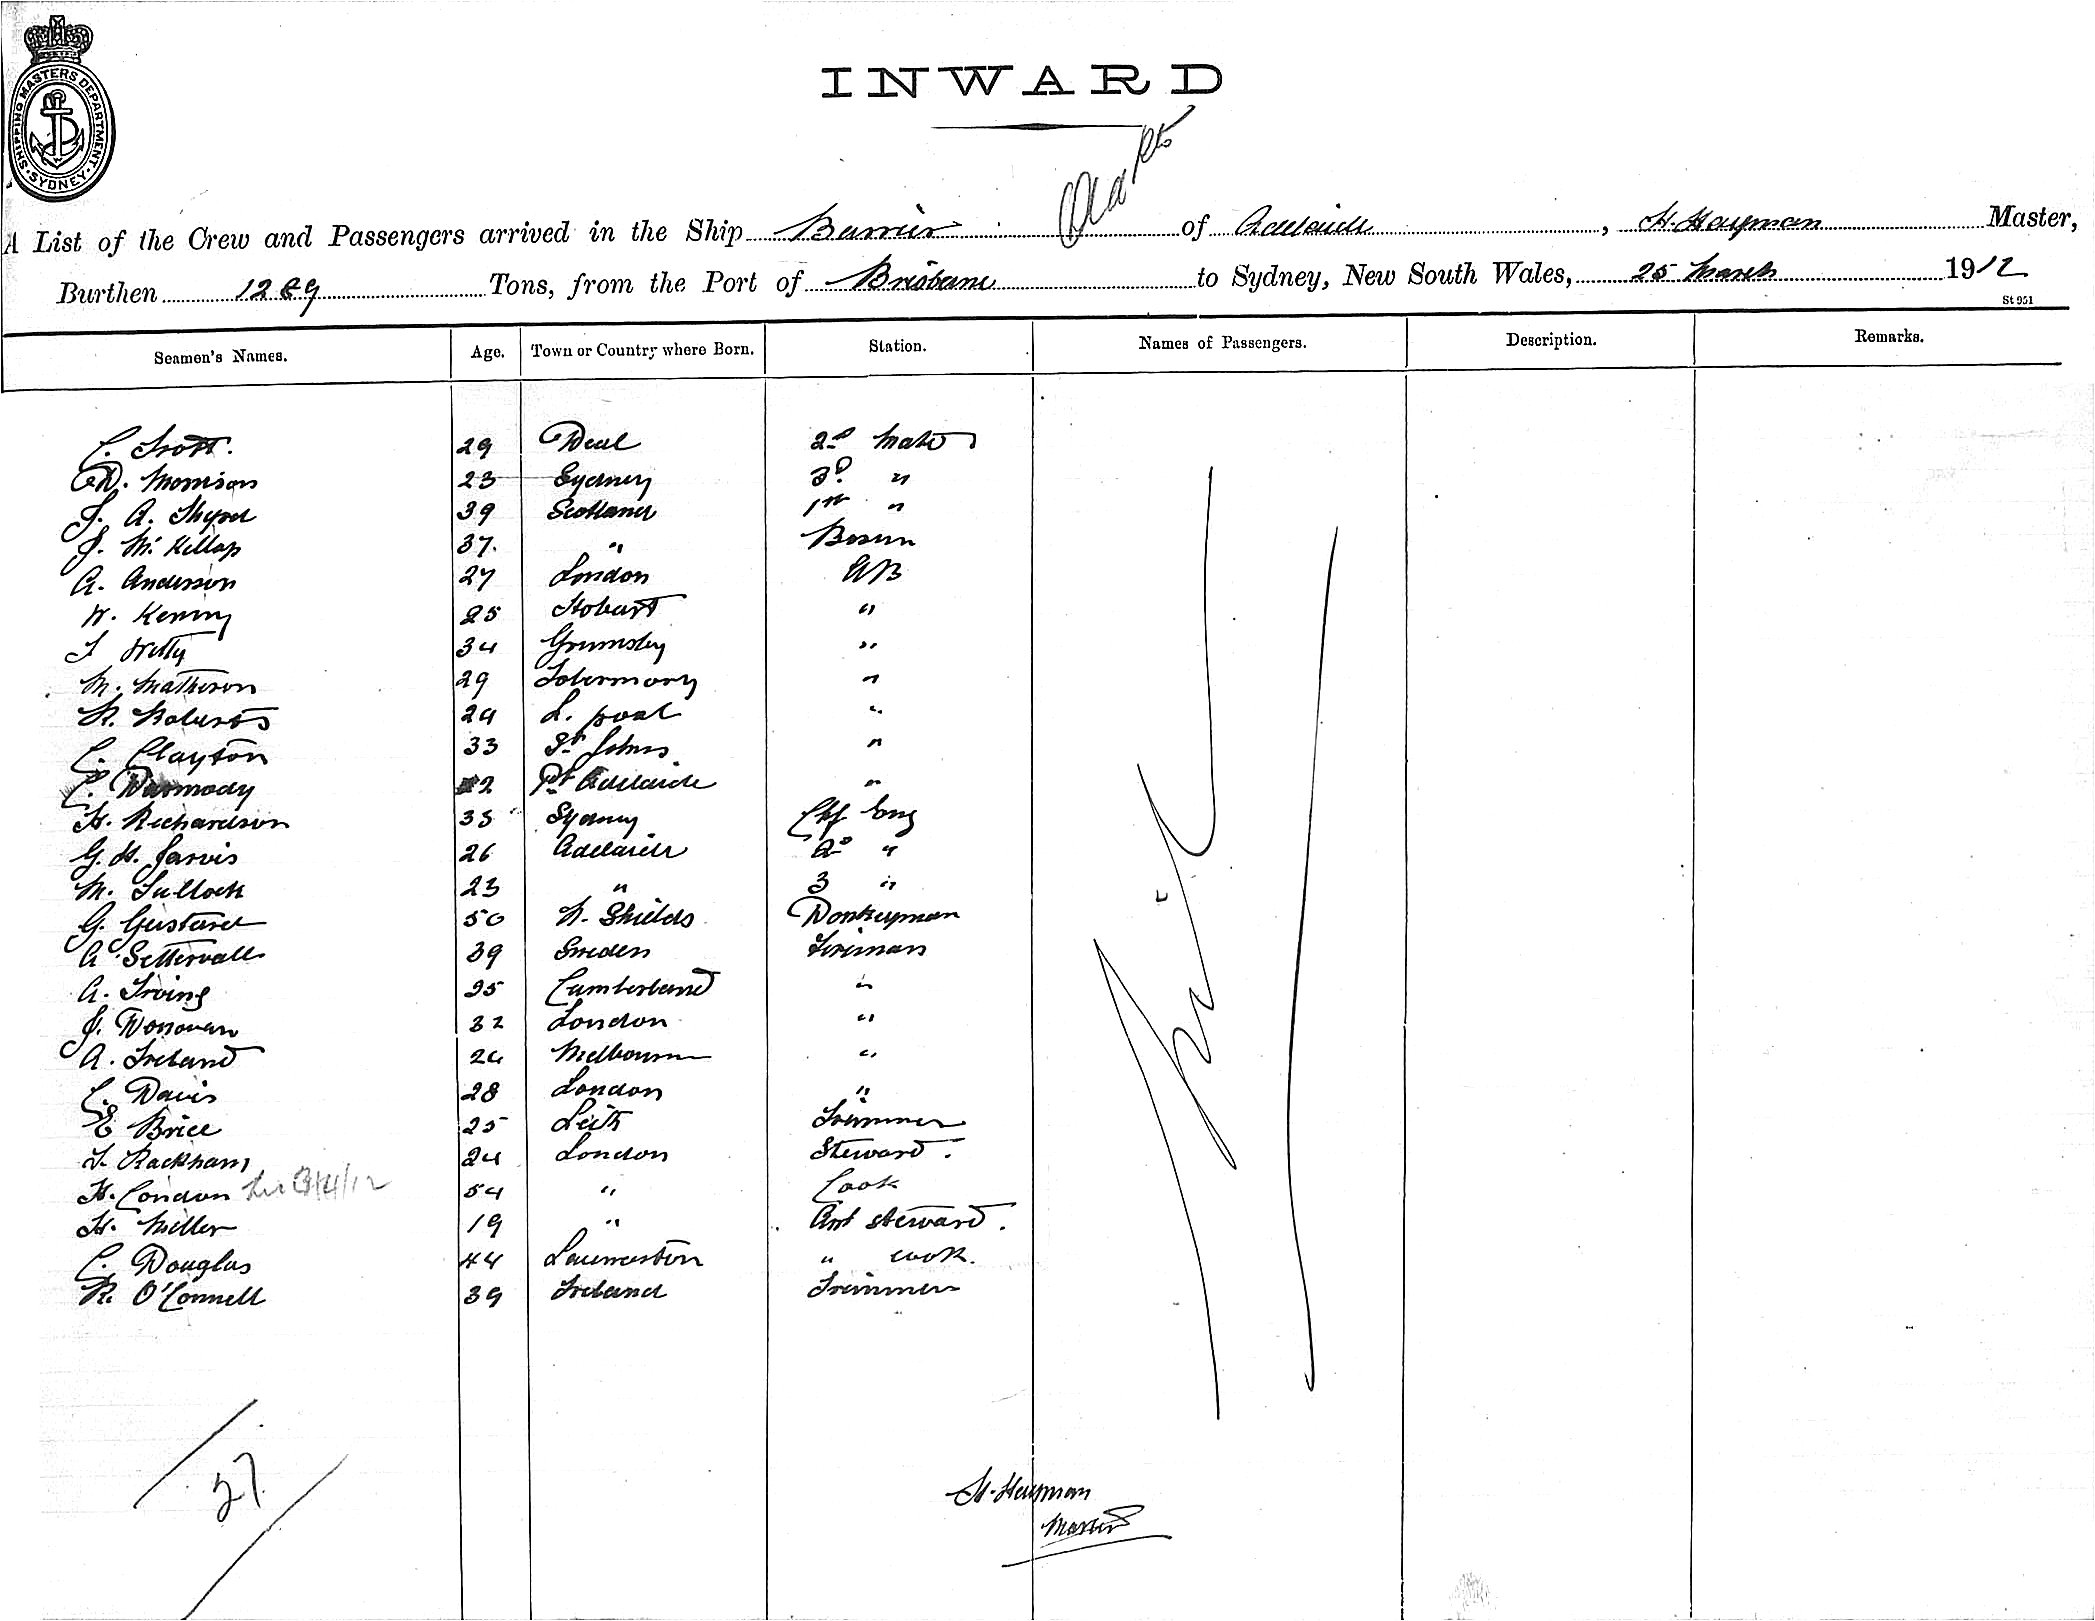 SHIPPING MASTERS DEPARTMENT
SYDNEY
INWARD
A List of the Crew and Passengers arrived in the Ship Barrier of Adelaide, H. Hayman Master,
Burthen Tons, from the Port of Brisbane to Sydney, New South Wales, 25 March 1912
St 951
Seamen's Names. Age. Town or Country where Born. Station. Names of Passengers. Description. Remarks.
29 Deal 2nd Mate
Morrison 23 Sydney 3d "
J. A. 39 Scotland 1st "
J. McKillop 37. " Bosun
A. Anderson 27 London AB
W. Kenny 25 Hobart "
34 Grumsby "
M. Matheson 29 Tobermory "
R. Roberts 24 L. pool "
C. Clayton 33 St Johns "
C. Darmody Pt Adelaide "
H. Richardson 35 Sydney Chf Eng
G. H. Jarvis 26 Adelaide 2d "
M. Tullock 23 " 3 "
G. Gustard 50 N. Shields Donkeyman
A. Settervall 39 Sweden Fireman
A. Irving 35 Cumberland "
J. Donovan 32 London "
A. Ireland 24 Melbourne "
C. Davis 28 London "
E Brice 25 Leith Trimmer
T. Rackham 24 London Steward.
H. London 54 " Cook
H. Miller 19 " Ast steward.
C. Douglas 44 Launceston " cook.
R. O'Connell 39 Ireland Trimmer
Nil
27
H. Hayman
Master